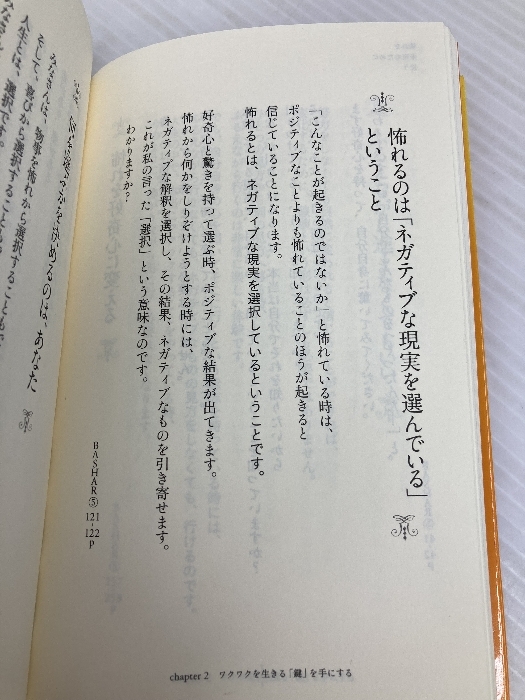 怖れるのは「ネガティブな現実を選んでいる」
ということ
「こんなことが起きるのではないか」と怖れている時は、
ポジティブなことよりも怖れていることのほうが起きると
信じていることになります。
怖れるとは、ネガティブな現実を選択しているということです。
好奇心と驚きを持って選ぶ時、ポジティブな結果が出てきます。
怖れから何かをしりぞけようとする時には、
ネガティブな解釈を選択し、その結果、ネガティブなものを引き寄せます。
これが私の言った「選択」という意味なのです。
わかりますか?
BASHAR⑤ 121-122p
を決めるのは、あなた
みなさんは、物事を怖れから選択することも
そして、喜びから選択することも
人生とは、選択です。
chapter 2 ワクワクを生きる「鍵」を手にする